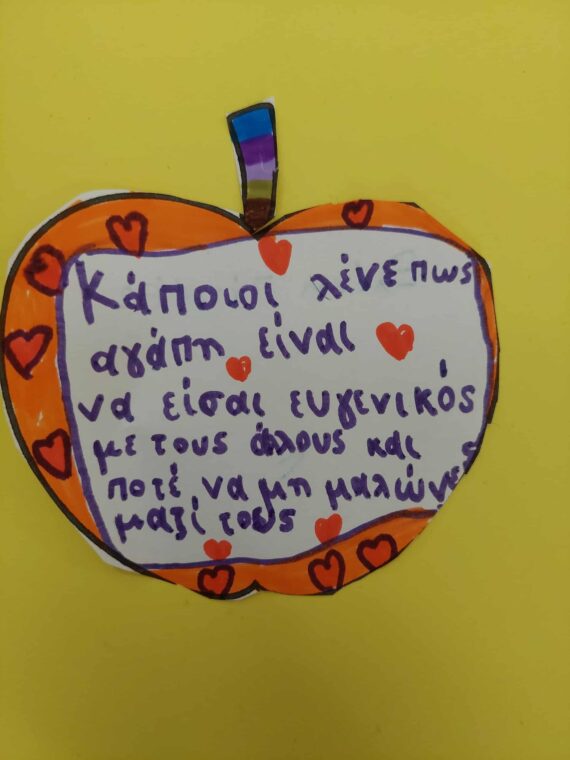 Κάποιοι λένε πως
αγάπη είναι
να είσαι ευγενικός
με τους άλλους και
ποτέ να μη μαλώνεις
μαζί τους